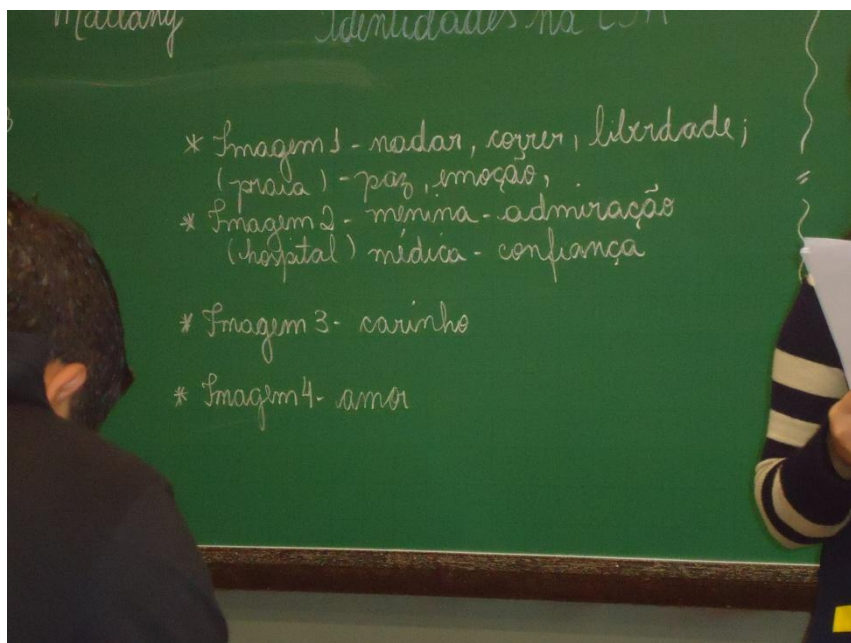 Mallany Identidades na
* Imagem 1 - nadar, correr, liberdade;
(praia) - paz, emoção,
* Imagem 2 - menina - admiração
(hospital) médica - confiança
* Imagem 3 - carinho
* Imagem 4 - amor